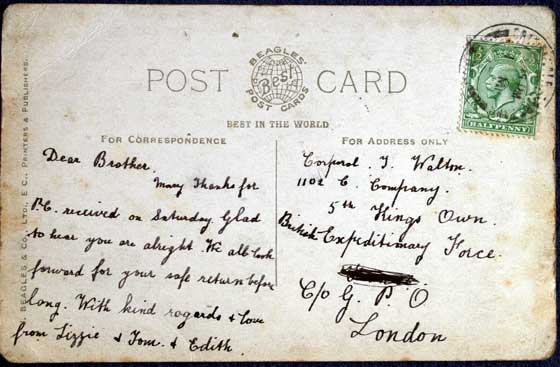 BEAGLES'
Best
POST CARDS
POST CARD
BEST IN THE WORLD
FOR CORRESPONDENCE
FOR ADDRESS ONLY
BEAGLES & CO., LTD., E.C., PRINTERS & PUBLISHERS.
HALFPENNY
Dear Brother.
Many Thanks for
P.C. received on Saturday. Glad
to hear you are alright. We all look
forward for your safe return before
long. With kind regards & love
from Lizzie & Tom. & Edith
Corporal. J. Walton.
1102 C. Company.
5th Kings Own.
British Expeditimary Force.
C/o G. P. O
London